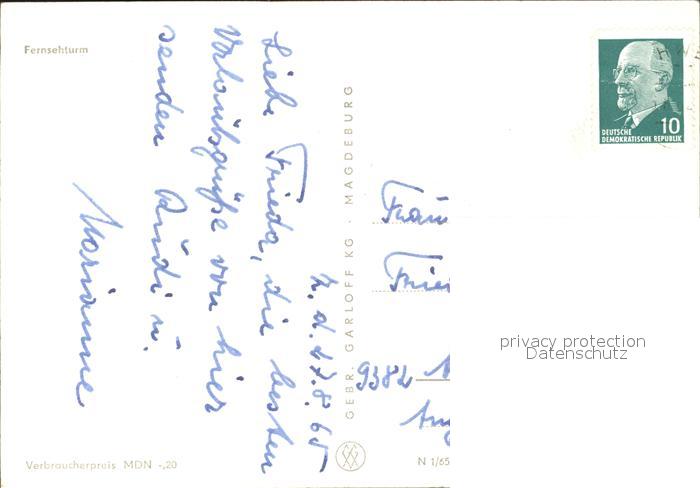 Fernsehturm
Z. d. 17.8.65
Liebe Frieda, die besten
Urlaubsgrüße von hier
senden Rudi u.
Marianne
GEBR. GARLOFF KG · MAGDEBURG
DEUTSCHE
DEMOKRATISCHE REPUBLIK
10
Frau
9382
privacy protection
Datenschutz
Verbraucherpreis MDN -,20
N 1/65